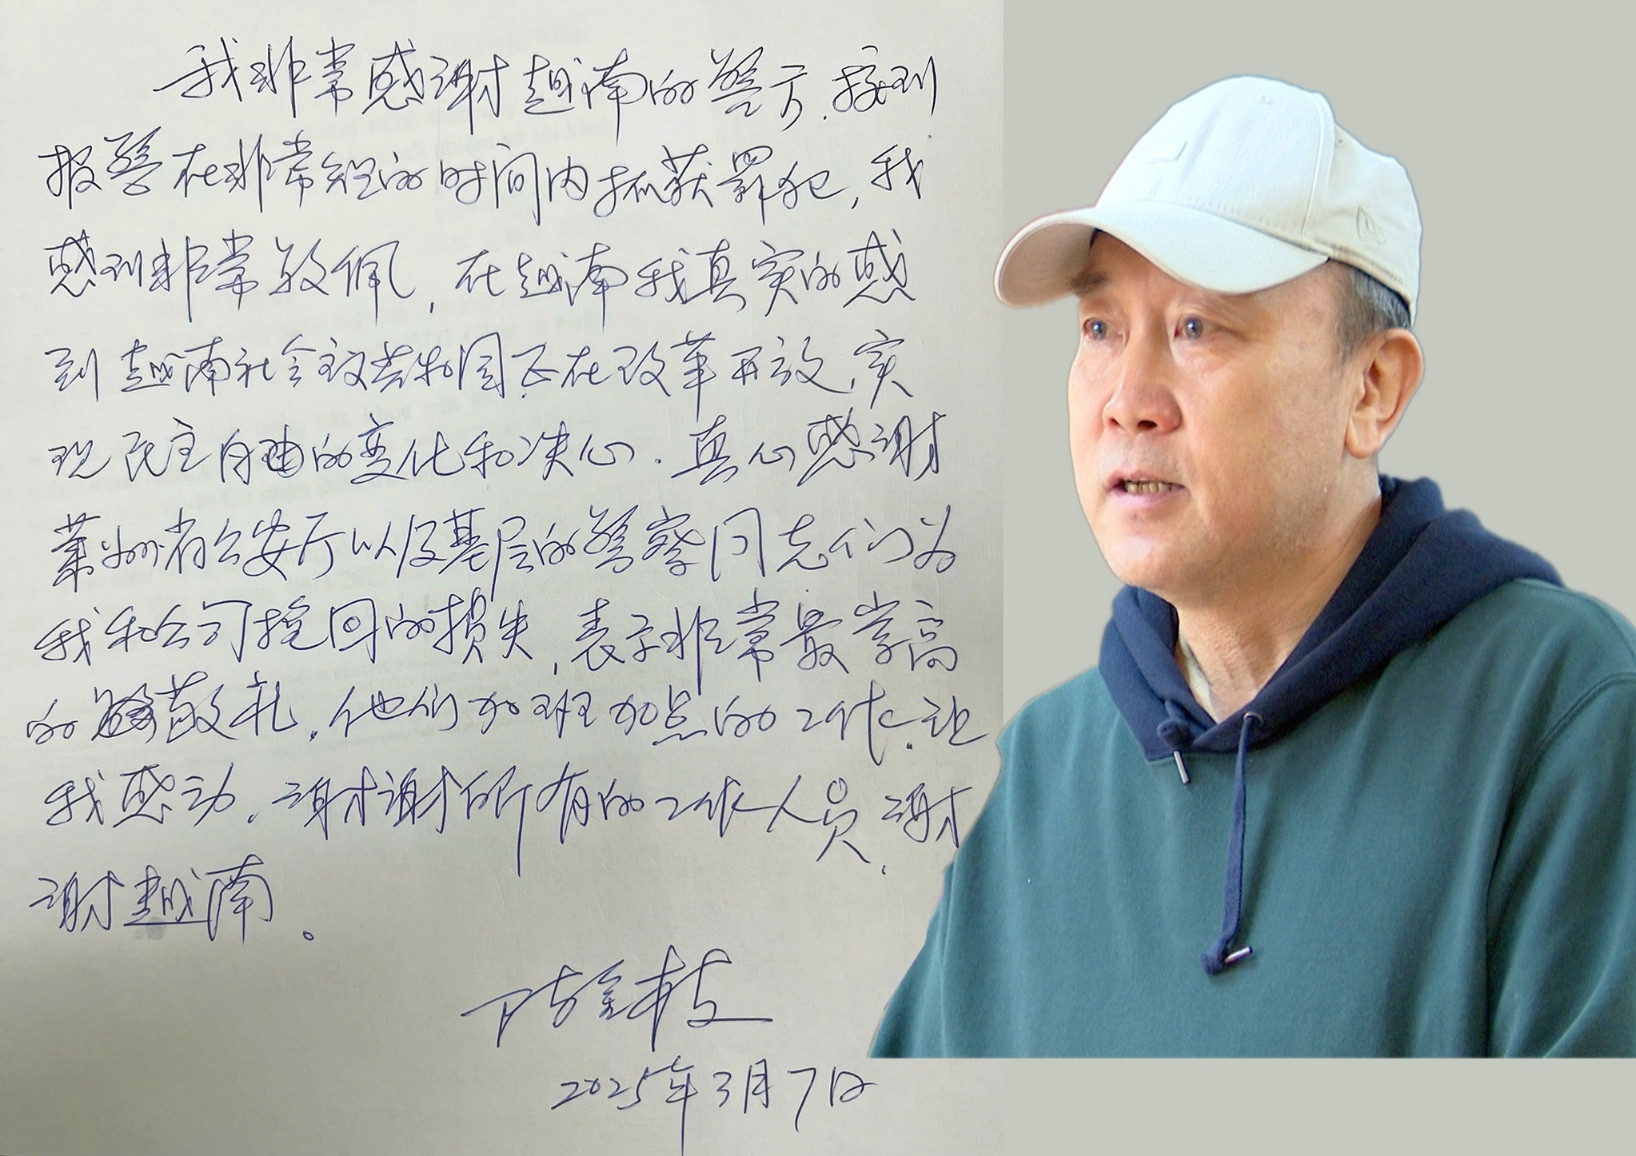 我非常感谢越南的警方，接到
报警在非常短的时间内抓获罪犯，我
感到非常敬佩，在越南我真实的感
到越南社会主义共和国正在改革开放，实
现民主自由的变化和决心．真心感谢
莱州省公安厅以及基层的警察同志们为
我和公司挽回的损失，表示非常最崇高
的敬礼，他们加班加点的工作，让
我感动，谢谢所有的工作人员，谢
谢越南。
2025年3月7日